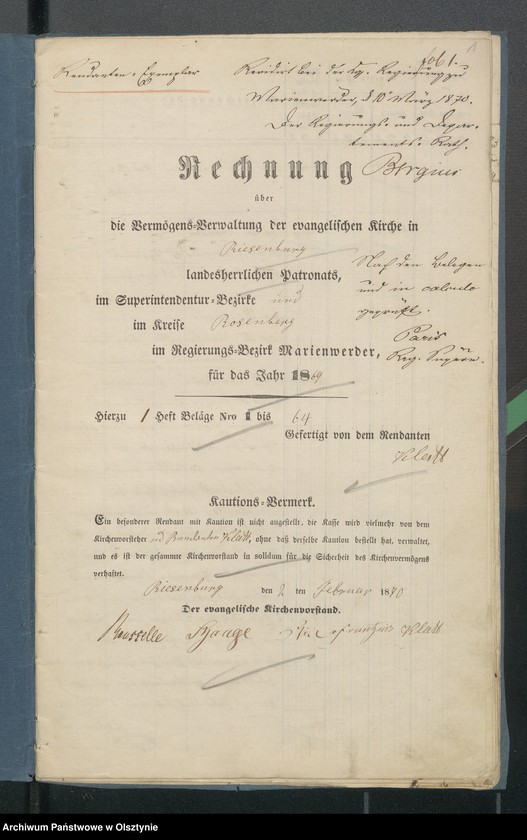 1
Rendanten-Exemplar
Revidirt bei der Kg. Regierung zu
Marienwerder, d 10 März 1870.
Der Regierungs- und Depar-
tements-Rath.
Bergius
Rechnung
über
die Vermögens-Verwaltung der evangelischen Kirche in
Riesenburg
landesherrlichen Patronats,
im Superintendentur-Bezirke und
im Kreise Rosenberg
im Regierungs-Bezirk Marienwerder,
für das Jahr 1869
Nach den Belegen
und in calculo
geprüft.
Paris
Reg.
Hierzu 1 Heft Beläge Nro 1 bis 64
Gefertigt von dem Rendanten
Klatt
Kautions-Vermerk.
Ein besonderer Rendant mit Kaution ist nicht angestellt, die Kasse wird vielmehr von dem
Kirchenvorsteher Klatt, ohne daß derselbe Kaution bestellt hat, verwaltet,
und es ist der gesammte Kirchenvorstand in solidum für die Sicherheit des Kirchenvermögens
verhaftet.
Riesenburg den 2 ten Februar 1870
Der evangelische Kirchenvorstand.
Klatt
Archiwum Państwowe w Olsztynie